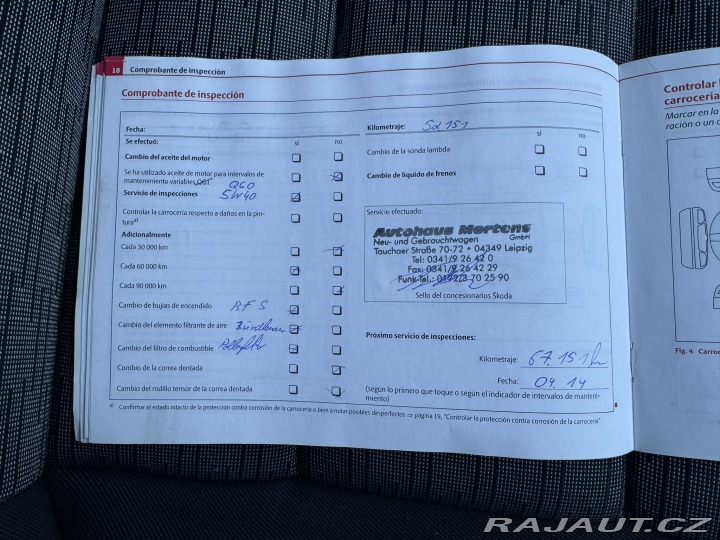 18 Comprobante de inspección
Comprobante de inspección
Fecha:
Se efectuó: sí no
Cambio del aceite del motor
Se ha utilizado aceite de motor para intervalos de
mantenimiento variables QG1
QG0
Servicio de inspecciones 5W40
Controlar la carrocería respecto a daños en la pin-
tura a)
Adicionalmente
Cada 30 000 km
Cada 60 000 km
Cada 90 000 km
Cambio de bujías de encendido BFS
Cambio del elemento filtrante de aire
Cambio del filtro de combustible
Cambio de la correa dentada
Cambio del rodillo tensor de la correa dentada
Kilometraje: 52 151
sí no
Cambio de la sonda lambda
Cambio de líquido de frenos
Servicio efectuado:
Autohaus Mertens
GmbH
Neu- und Gebrauchtwagen
Tauchaer Straße 70-72 • 04349 Leipzig
Tel: 0341/9 26 42 0
Fax: 0341/9 26 42 29
Funk-Tel.: 0172/3 70 25 90
Sello del concesionarios Škoda
Próximo servicio de inspecciones:
Kilometraje: 67.151 km
Fecha: 04.14
(según lo primero que toque o según el indicador de intervalos de manteni-
miento)
a) Confirmar el estado intacto de la protección contra corrosión de la carrocería o bien anotar posibles desperfectos ⇒ página 19, "Controlar la protección contra corrosión de la carrocería".
Controlar l
carrocería
Marcar en la
ración o un d
Fig. 4 Carroc
RAJAUT.CZ